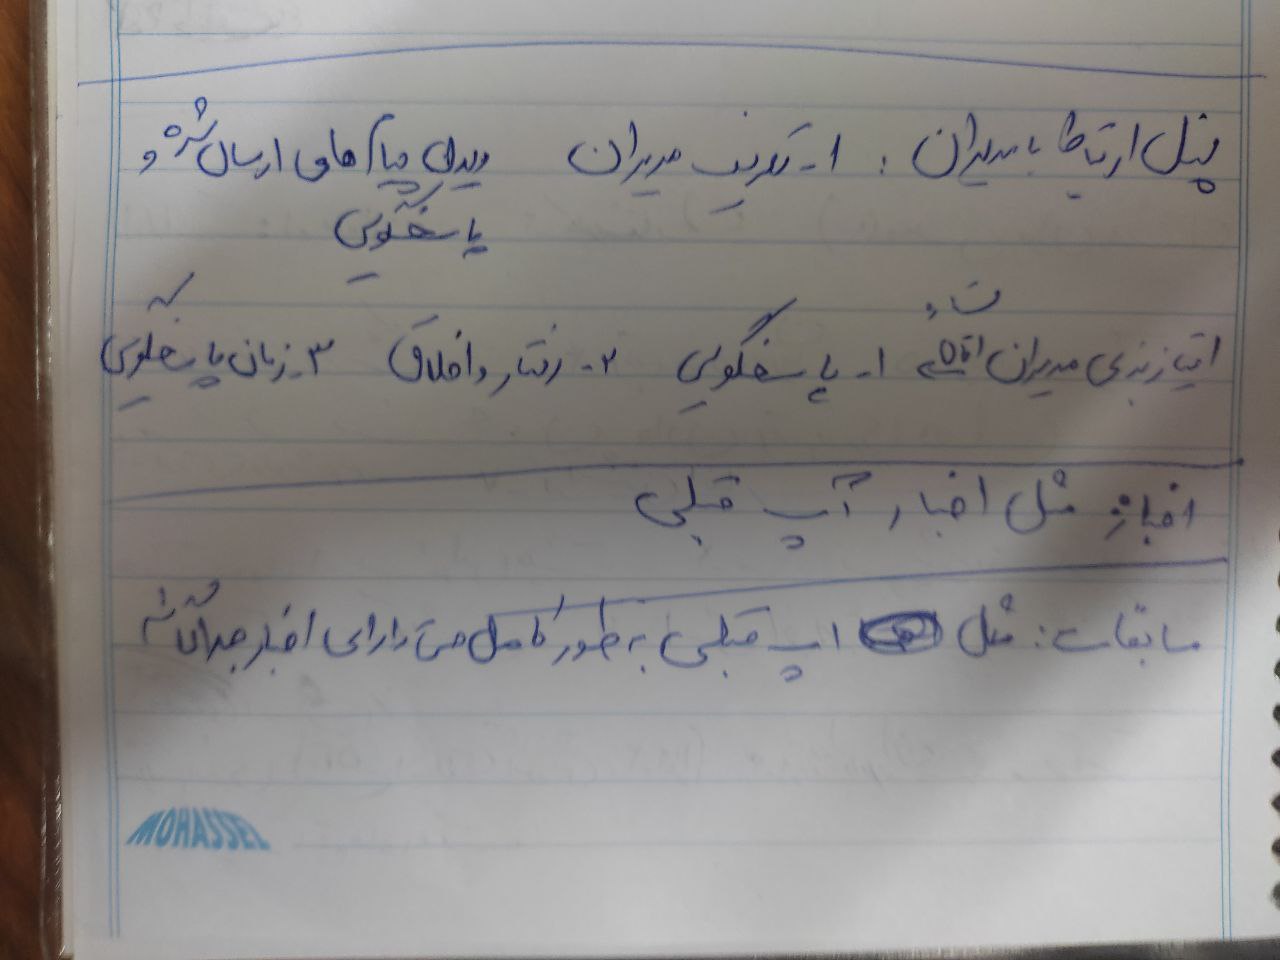 پنل ارتباط با مدیران : ۱- تعریف مدیران دیدن پیام های ارسال شده و
پاسخگویی
امتیازبندی مدیران ۱- پاسخگویی ۲- رفتار و اخلاق ۳- زمان پاسخگویی
اخبار: مثل اخبار آپ قبلی
مسابقات: مثل اپ قبلی به طور کامل حتی دارای اخبار جداگانه
MOHASSEL